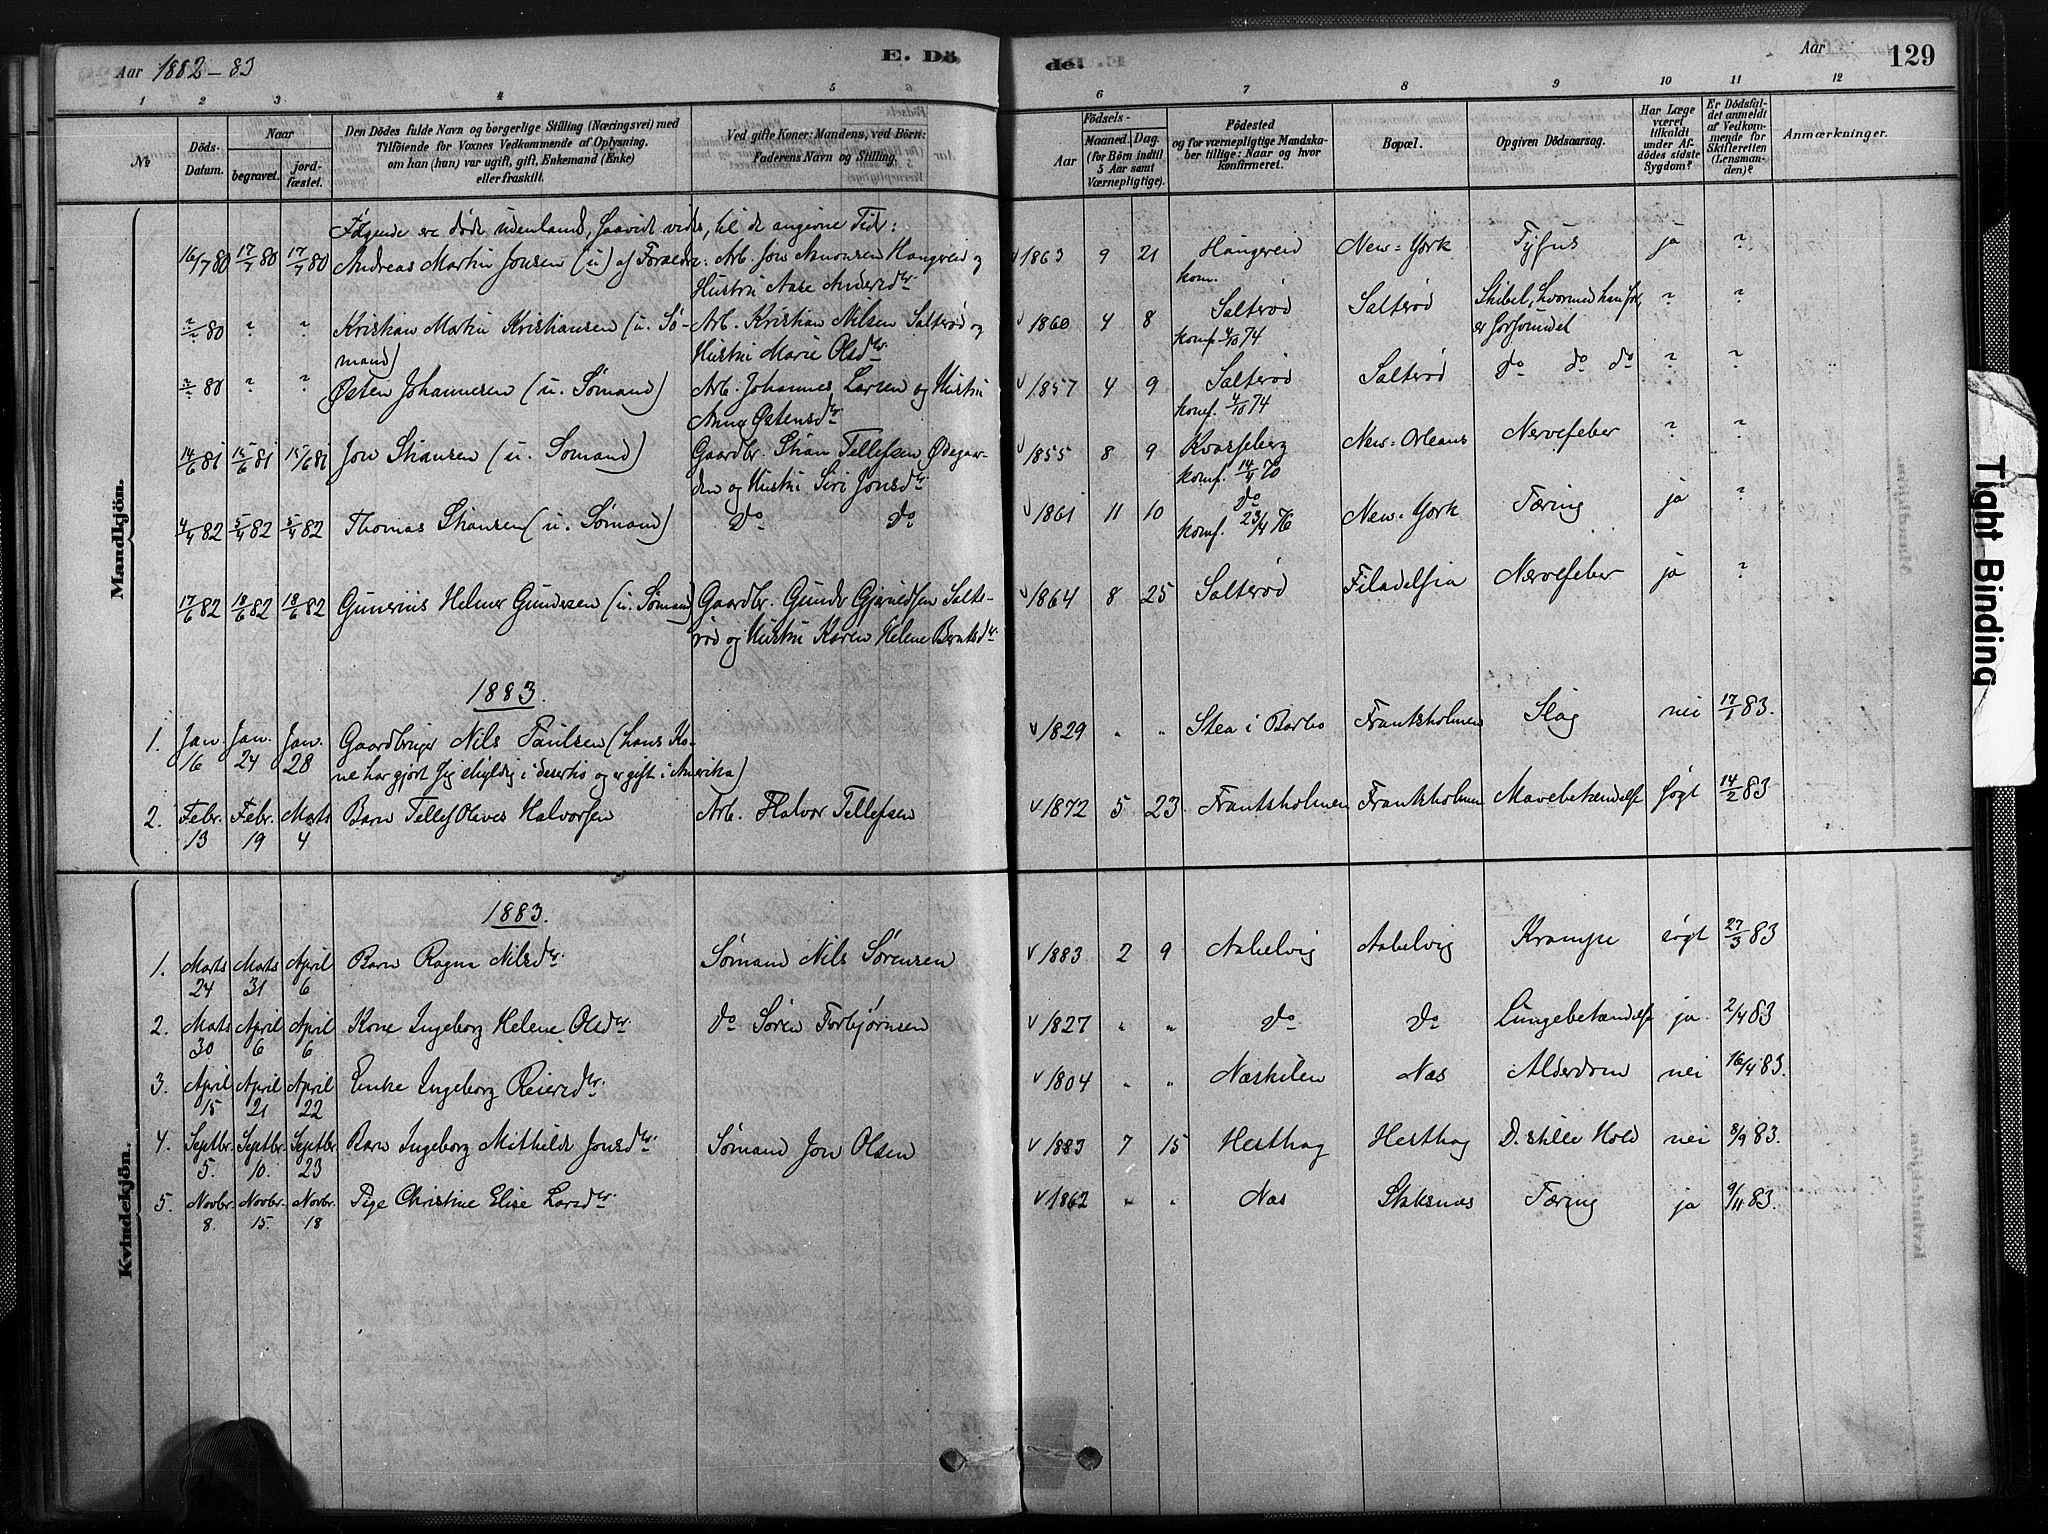 Aar 1882-83
E. Dö
de.
Aar
129
1 2 3 4 5 6 7 8 9 10 11 12
No
Döds-Datum.
Naar
begravet.
jord-fæstet.
Den Dödes fulde Navn og borgerlige Stilling (Næringsvei) med
Tilföiende for Voxnes Vedkommende af Oplysning,
om han (hun) var ugift, gift, Enkemand (Enke)
eller fraskilt.
Ved gifte Koner: Mandens, ved Börn:
Faderens Navn og Stilling.
Födsels-
Aar
Maaned.
Dag.
(for Börn indtil
5 Aar samt
Værnepligtige).
Födested
og for værnepligtige Mandska-
ber tillige: Naar og hvor
konfirmeret.
Bopæl.
Opgiven Dödsaarsag.
Har Læge
været
tilkaldt
under Af-
dödes sidste
Sygdom?
Er Dödsfal-
det anmeldt
af Vedkom-
mende for
Skifteretten
(Lensman-
den)?
Anmærkninger.
Mandkjön.
Følgende ere døde udenlands, saavidt vides, til de angivne Tider:
16/7 80 17/7 80 17/7 80 Andreas Martin Jonsen (u) af Forældre: Arb. Jon Amonsen Haugereid og 1863 9 21 Haugereid New-York Tyfus ja ?
Hustru Aase Andersdtr. konf.
?/? 80 ? ? Kristian Martin Kristiansen (u. Sø- Arb. Kristian Nilsen Salterød og 1860 4 8 Salterød Salterød Skibet, hvormed han for, ? ?
mand) Hustru Marie Olsdtr. konf. 4/10 74 er forsvundet
?/? 80 ? ? Østen Johannesen (u. Sømand) Arb. Johannes Larsen og Hustru 1857 4 9 Salterød Salterød do do do ? ?
Anna Østensdtr. konf. 4/10 74
14/6 81 15/6 81 15/6 81 Jon Stiansen (u. Sømand) Gaardbr. Stian Tellefsen Ødegaar- 1855 8 9 Kvasseberg New-Orleans Nervefeber ? ?
den og Hustru Siri Jonsdtr. konf. 14/4 70
4/4 82 5/4 82 5/4 82 Thomas Stiansen (u. Sømand) do do 1861 11 10 do New-York Tæring ja ?
konf. 23/4 76
17/6 82 18/6 82 18/6 82 Gunerius Helmer Gundersen (u. Sømand) Gaardbr. Gunder Gjeruldsen Salte- 1864 8 25 Salterød Filadelfia Nervefeber ja ?
rød og Hustru Karen Helene Berntsdtr.
1883.
1. Jan. 16 Jan. 24 Jan. 28 Gaardbruger Nils Paulsen (hans Ko- 1829 " " Stea i Barbo Franksholmen Slag nei 17/1 83.
ne har gjort sig skyldig i desertio og er gift i Amerika)
2. Febr. 13 Febr. 19 Marts 4 Barn Tellef Olaves Halvorsen Arb. Halvor Tellefsen 1872 5 23 Franksholmen Franksholmen Mavebetændelse søgt 14/2 83
Kvindekjön.
1883.
1. Marts 24 Marts 31 April 6 Barn Ragna Nilsdtr. Sømand Nils Sørensen 1883 2 9 Aabelvig Aabelvig Krampe søgt 27/3 83
2. Marts 30 April 6 April 6 Kone Ingeborg Helene Olsdtr. do Søren Torbjørnsen 1827 " " do do Lungebetændelse ja 2/4 83
3. April 15 April 21 April 22 Enke Ingeborg Reiersdtr. 1804 " " Næskilen Næs Alderdom nei 16/4 83.
4. Septbr. 5. Septbr. 10. Septbr. 23 Barn Ingeborg Mathilde Jonsdtr. Sømand Jon Olsen 1883 7 15 Hesthag Hesthag D. stille Hold nei 8/9 83.
5. Novbr. 8. Novbr. 15. Novbr. 18 Pige Christine Elise Larsdtr. 1862 " " Næs Staksnæs Tæring ja 9/11 83.
Tight Binding